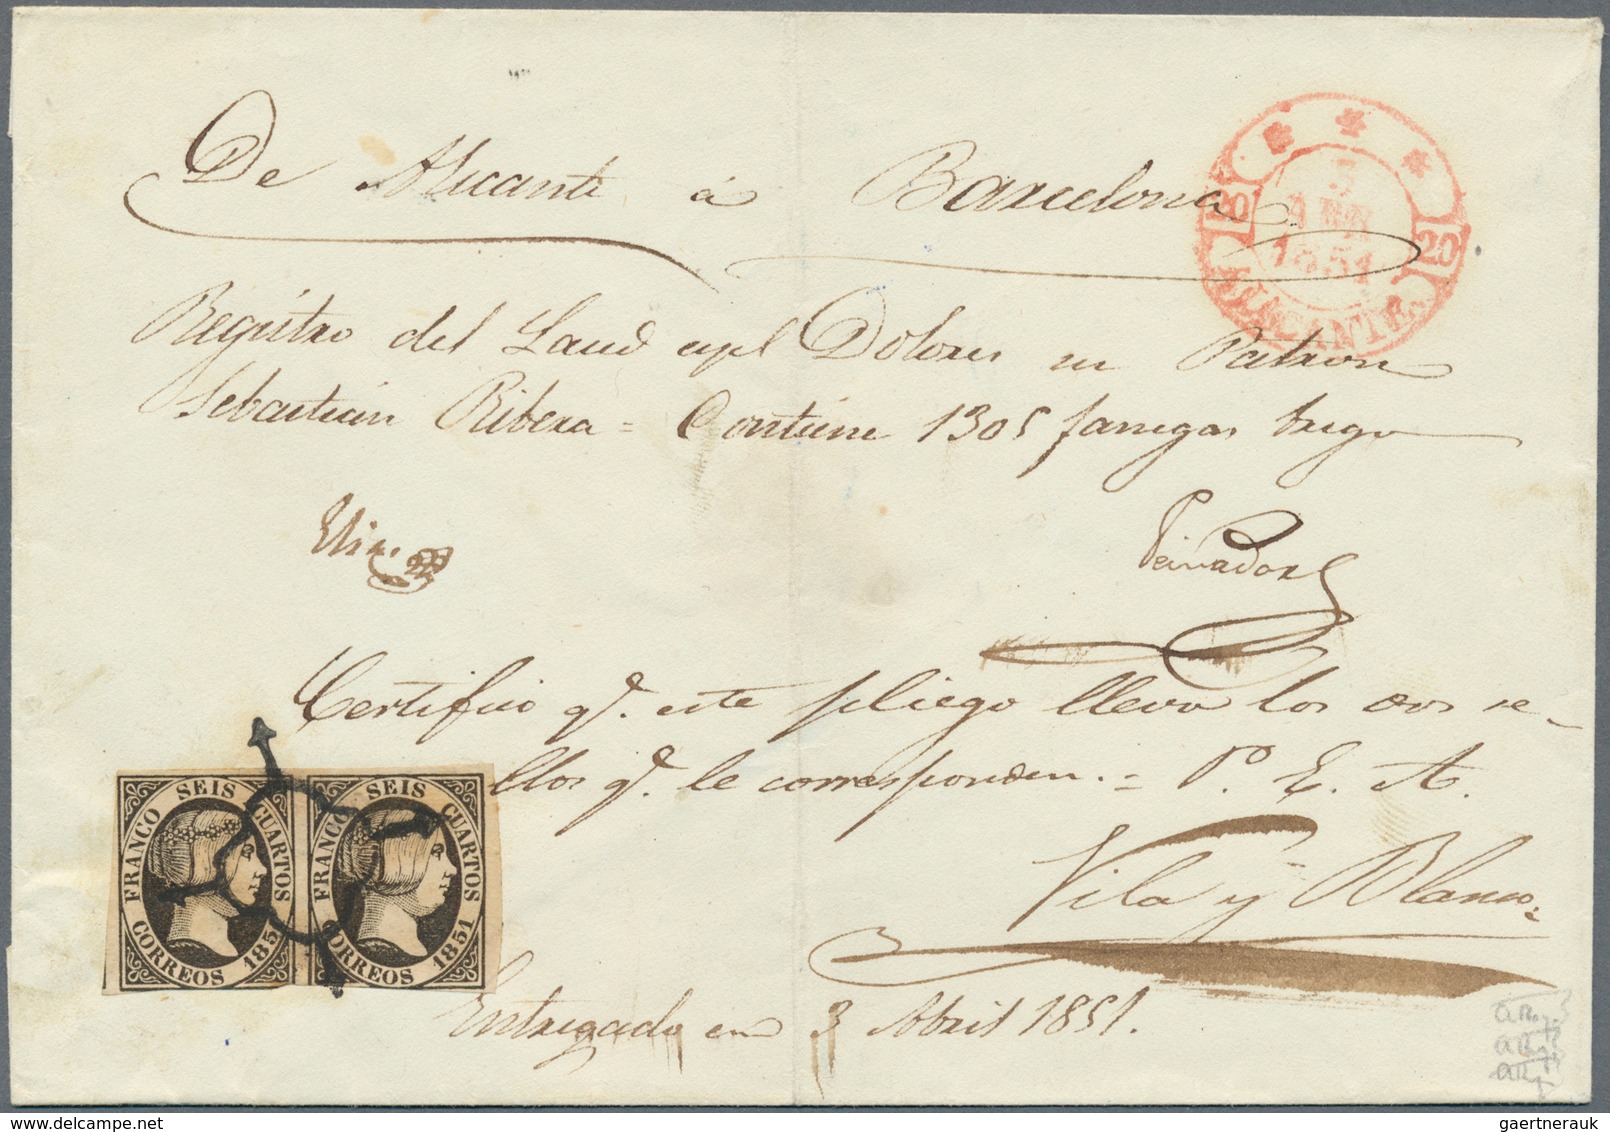 De Alicante á Barcelona
3
ABR
1851
20
20
ALICANTE.
Registro del Laud apel Dolores su Patron
Sebastian Ribera = Contiene 1305 fanegas trigo
Peinador
Certifico q.e este pliego lleva los dos se-
llos q.e le corresponden. = P.o E. A.
Vila y Blanco.
FRANCO SEIS CUARTOS
CORREOS 185
FRANCO SEIS CUARTOS
CORREOS 1851
Entregado en 3 Abril 1851.
gaertnerauk / delcampe.net